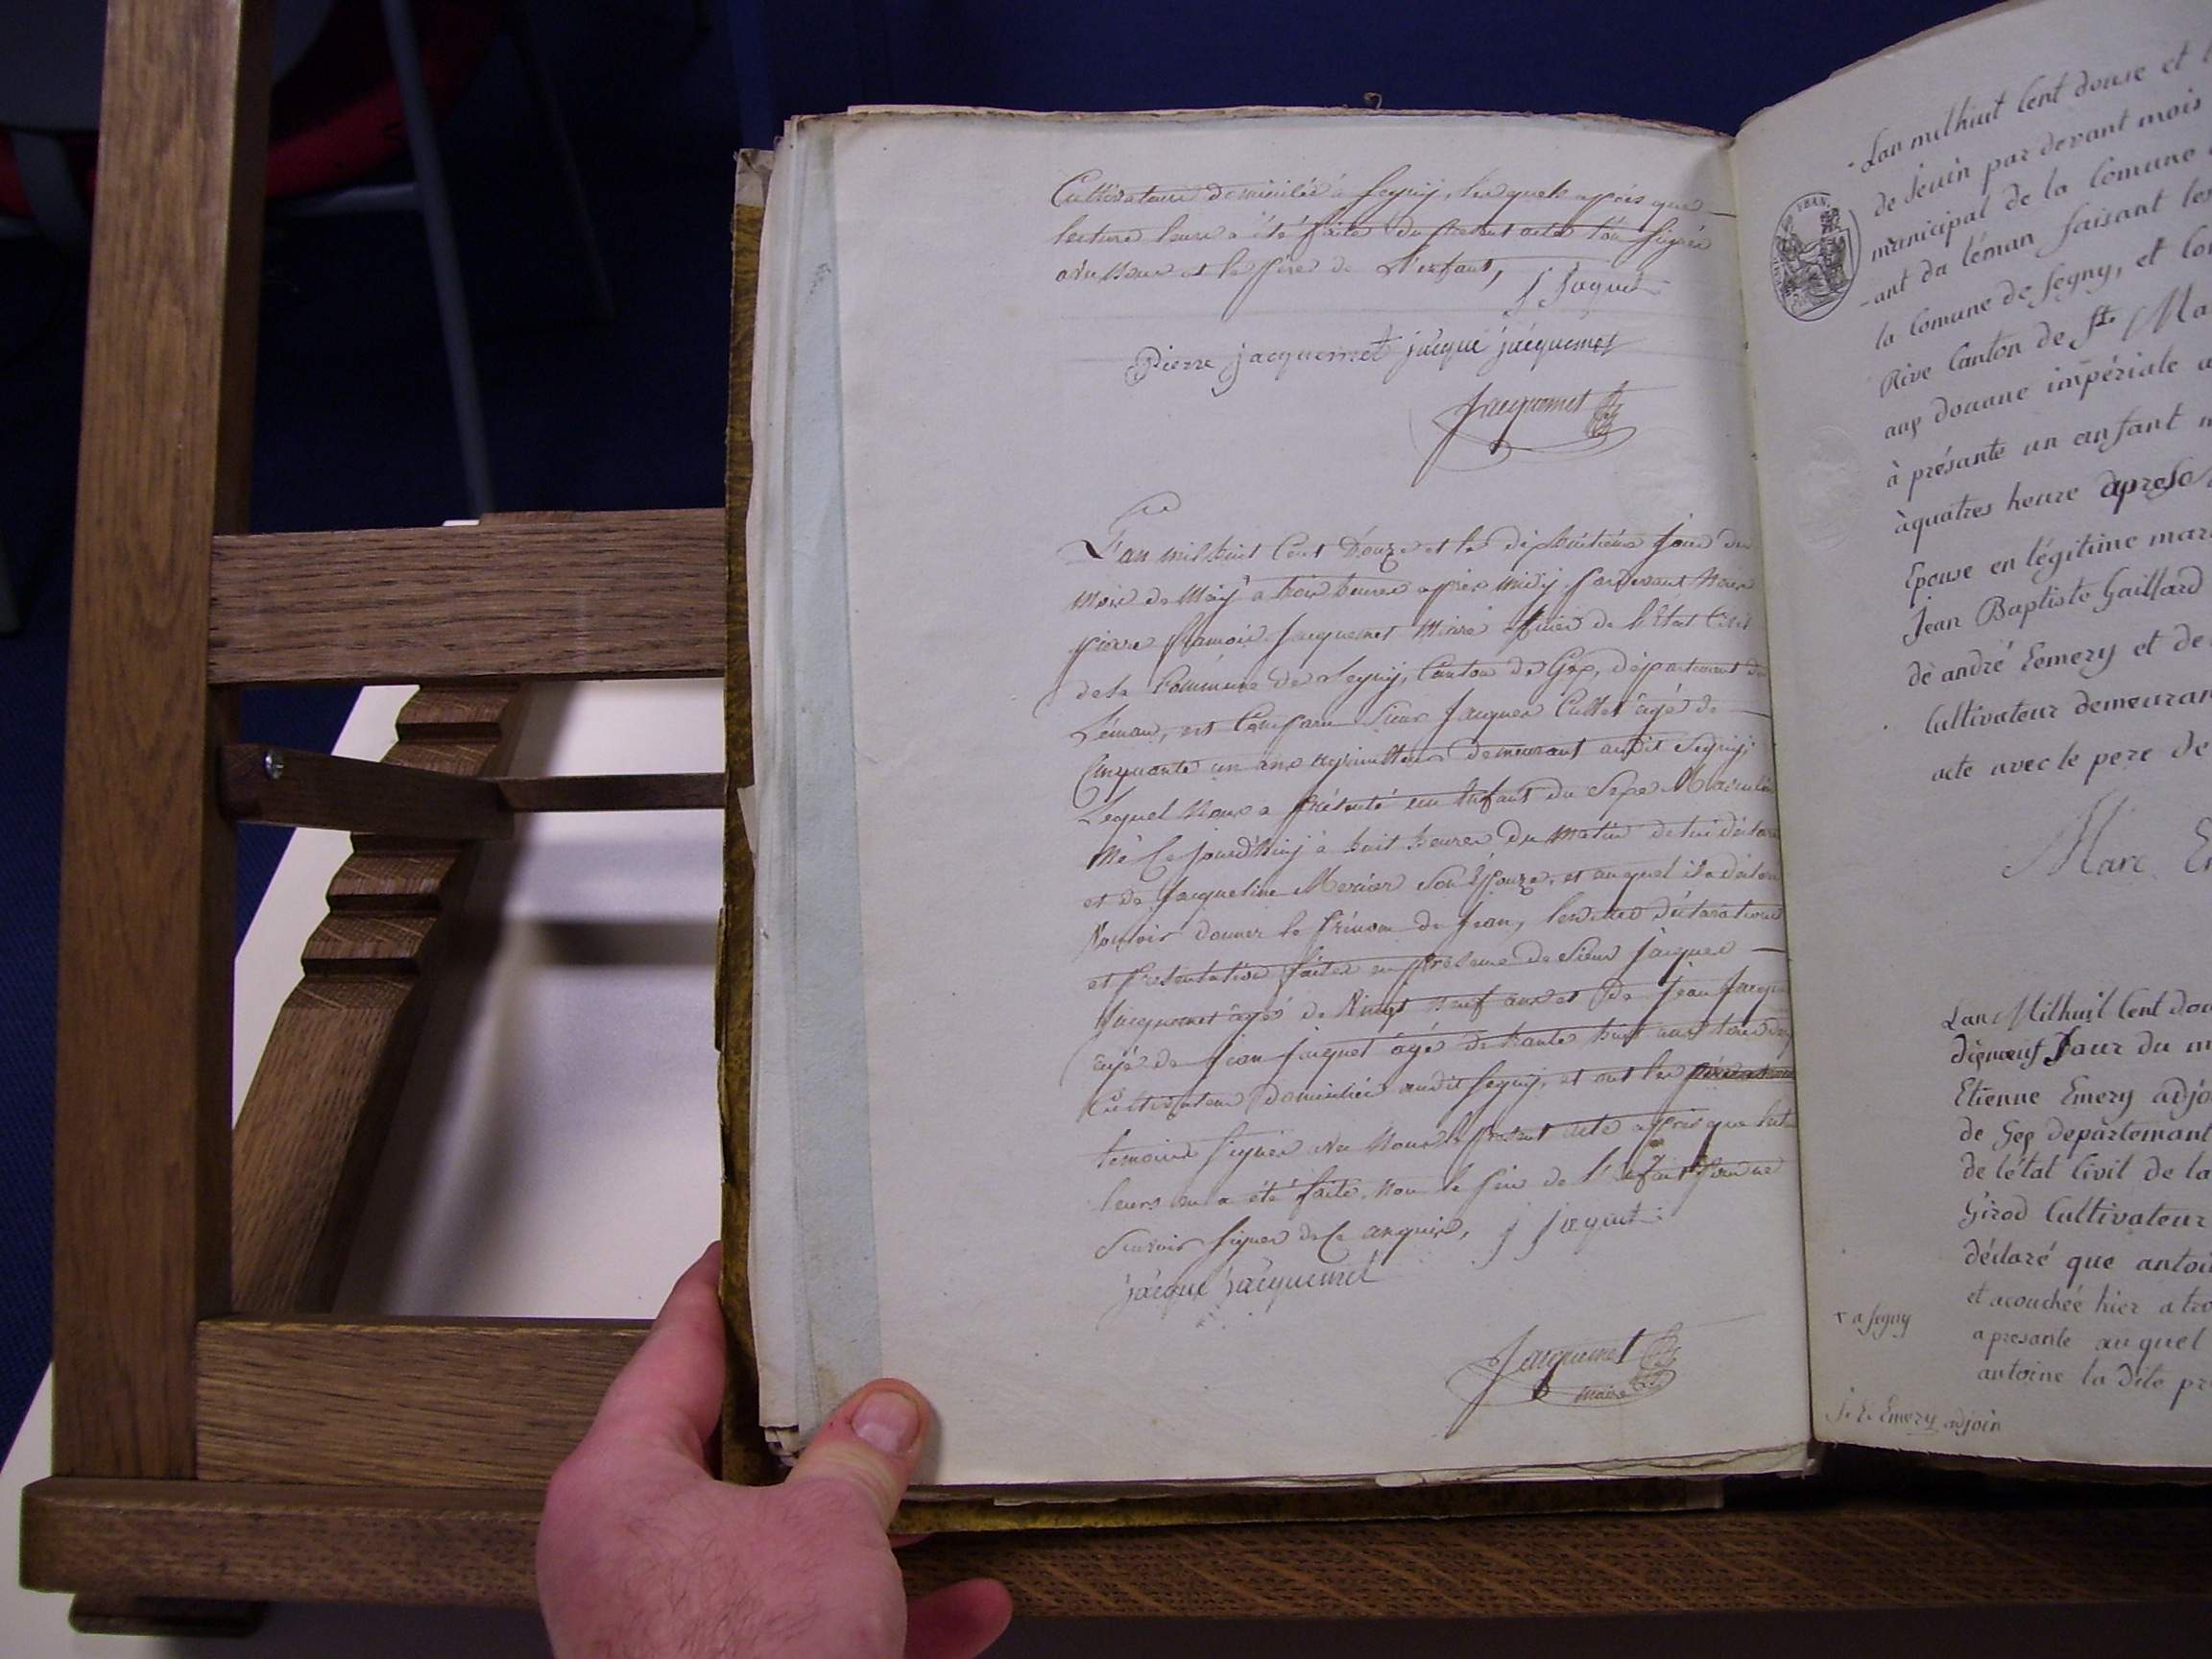 Cultivateurs domiciliés à Segny, lesquels après que
lecture leure a été faite du present acte l'on signés
avec nous et le père de L'enfant,
J Jaquet
Pierre jacquemet jacque jacquemet
Jacquemet
L'an mil huit Cent douze et le dixhuitième jour du
mois de May à trois heures après midy, pardevant Nous
pierre françois Jacquemet Maire officier de l'état Civil
de la Commune de Segny, Canton de Gex, département du
Léman, est Comparu Sieur Jacques Cullet âgé de
Cinquante un ans agriculteur demeurant audit Segny,
Lequel Nous a présenté un Enfant du Sexe Masculin
Né Ce jourd'huy à huit heures du matin de lui déclarant
et de Jacqueline Mercier Son Epouze, et auquel il a déclaré
Vouloir donner le prénom de Jean, lesdites déclaration
et presentation faites en présence de Sieur Jacques
Jacquemet âgé de Vingt neuf ans et de Jean Jacque
âgé de Jean Jaquet âgé de trante huit ans tous deux
Cultivateurs domiciliés audit Segny, et ont les
temoins signés avec Nous le présent acte après que lect
leurs en a été faite, non le père de l'enfant pour ne
Scavoir signer de ce enquis, J Jaquet
jacque jacquemet
Jacquemet
maire
Lan milhuit Cent douse et
de Jeuin par devant mois
municipal de la Comune
ant du léman faisant les
la Comune de Segny, et
Rive Canton de Ste Ma
aux douane impériale a
à présante un enfant
à quatres heure apres
Epouse en légitime mar
Jean Baptiste Gaillard
dè andré Eemery et de
Cultivateur demeuran
acte avec le pere de
Marc E
Lan Milhuit Cent dou
dixneuf Jour du m
Etienne Emery adjo
de Gex departemant
de l'état Civil de la
Girod Cultivateur
déclaré que antoi
et acouchée hier a tro
+ a segny
apresante au quel
antoine la dite pr
J. E. Emery adjoin